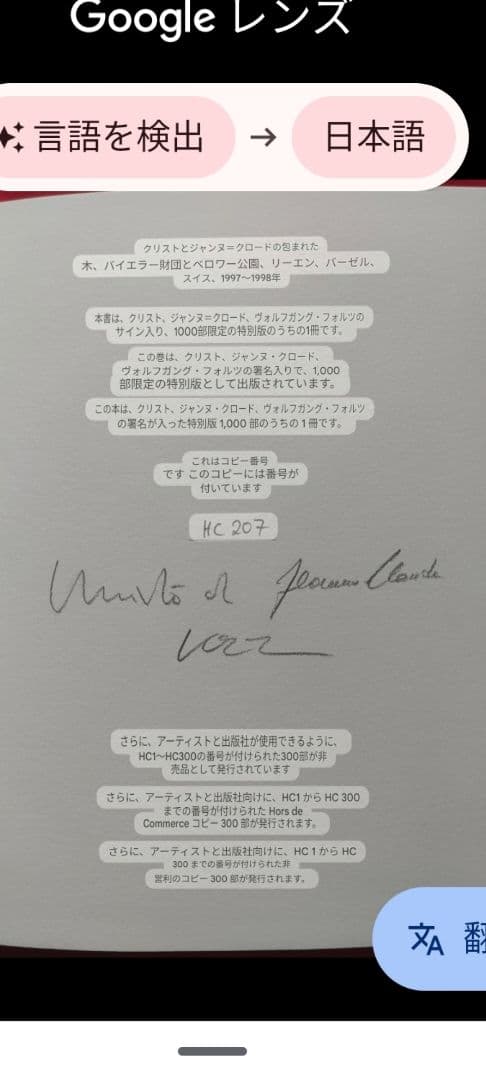 Google レンズ
言語を検出 → 日本語
クリストとジャンヌ=クロードの包まれた
木、バイエラー財団とベロワー公園、リーエン、バーゼル、
スイス、1997～1998年
本書は、クリスト、ジャンヌ=クロード、ヴォルフガング・フォルツの
サイン入り、1000部限定の特別版のうちの1冊です。
この巻は、クリスト、ジャンヌ・クロード、
ヴォルフガング・フォルツの署名入りで、1,000
部限定の特別版として出版されています。
この本は、クリスト、ジャンヌ・クロード、ヴォルフガング・フォルツ
の署名が入った特別版 1,000 部のうちの 1 冊です。
これはコピー番号
です このコピーには番号が
付いています
HC 207
Christo et Jeanne Claude
VOLZ
さらに、アーティストと出版社が使用できるように、
HC1～HC300の番号が付けられた300部が非
売品として発行されています
さらに、アーティストと出版社向けに、HC1 から HC 300
までの番号が付けられた Hors de
Commerce コピー 300 部が発行されます。
さらに、アーティストと出版社向けに、HC 1 から HC
300 までの番号が付けられた非
営利のコピー 300 部が発行されます。
翻